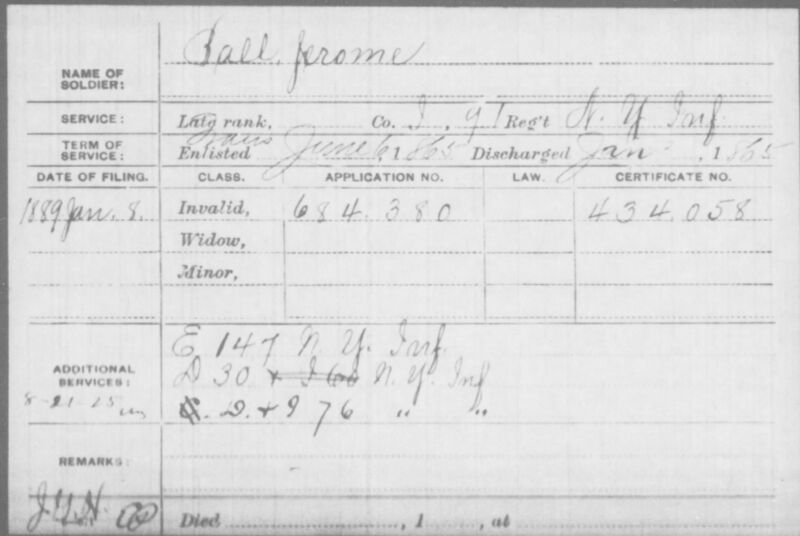 NAME OF SOLDIER: Ball, Jerome
SERVICE: Late rank, Co. I, 91 Reg't N. Y. Inf.
Trans
TERM OF SERVICE: Enlisted June 6, 1865 Discharged Jan, 1865
DATE OF FILING. CLASS. APPLICATION NO. LAW. CERTIFICATE NO.
1889 Jan. 8. Invalid, 684.380 434.058
Widow,
Minor,
E 147 N. Y. Inf.
ADDITIONAL SERVICES: D 30 + I N. Y. Inf
8-21-25 D. + I 76 " "
REMARKS:
Died , 1 , at